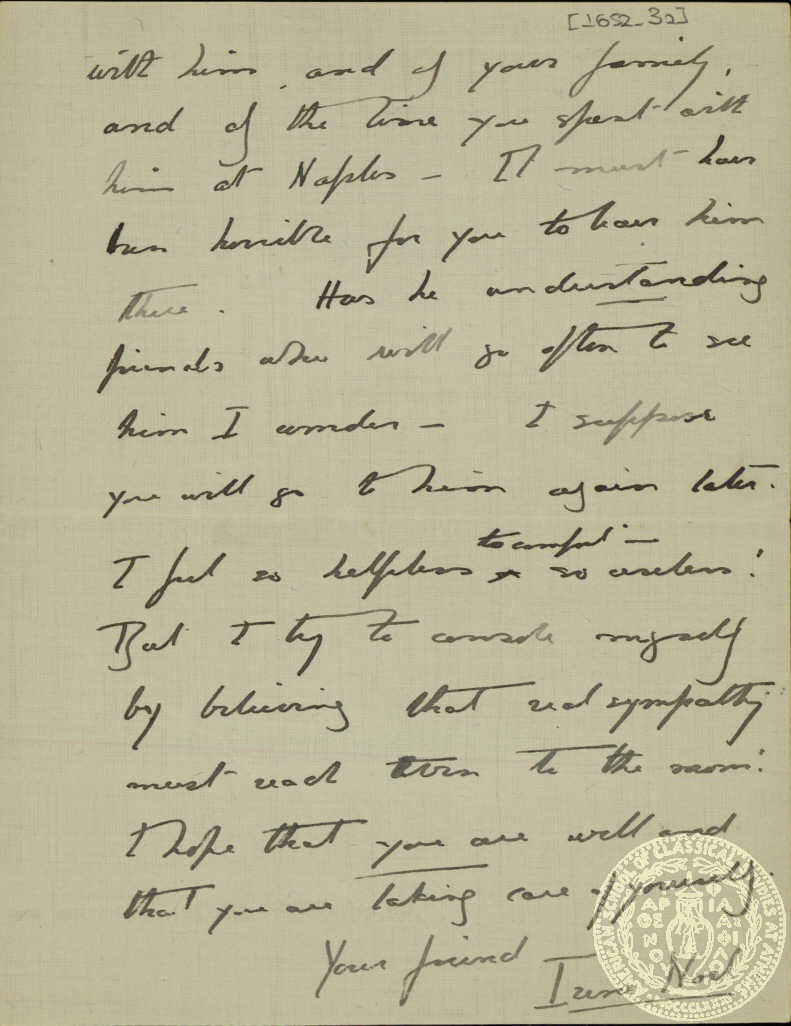 [1652-32]
with him, and of your family,
and of the time you spent with
him at Naples – It must have
been horrible for you to leave him
there. Has he understanding
friends who will go often to see
him I wonder – I suppose
you will go to him again later.
to comfort –
I feel so helpless so useless!
But I try to console myself
by believing that real sympathy
must reach even to the
I hope that you are well and
that you are taking care of yourself.
Your friend
Irene Noel
AMERICAN SCHOOL OF CLASSICAL STUDIES AT ATHENS